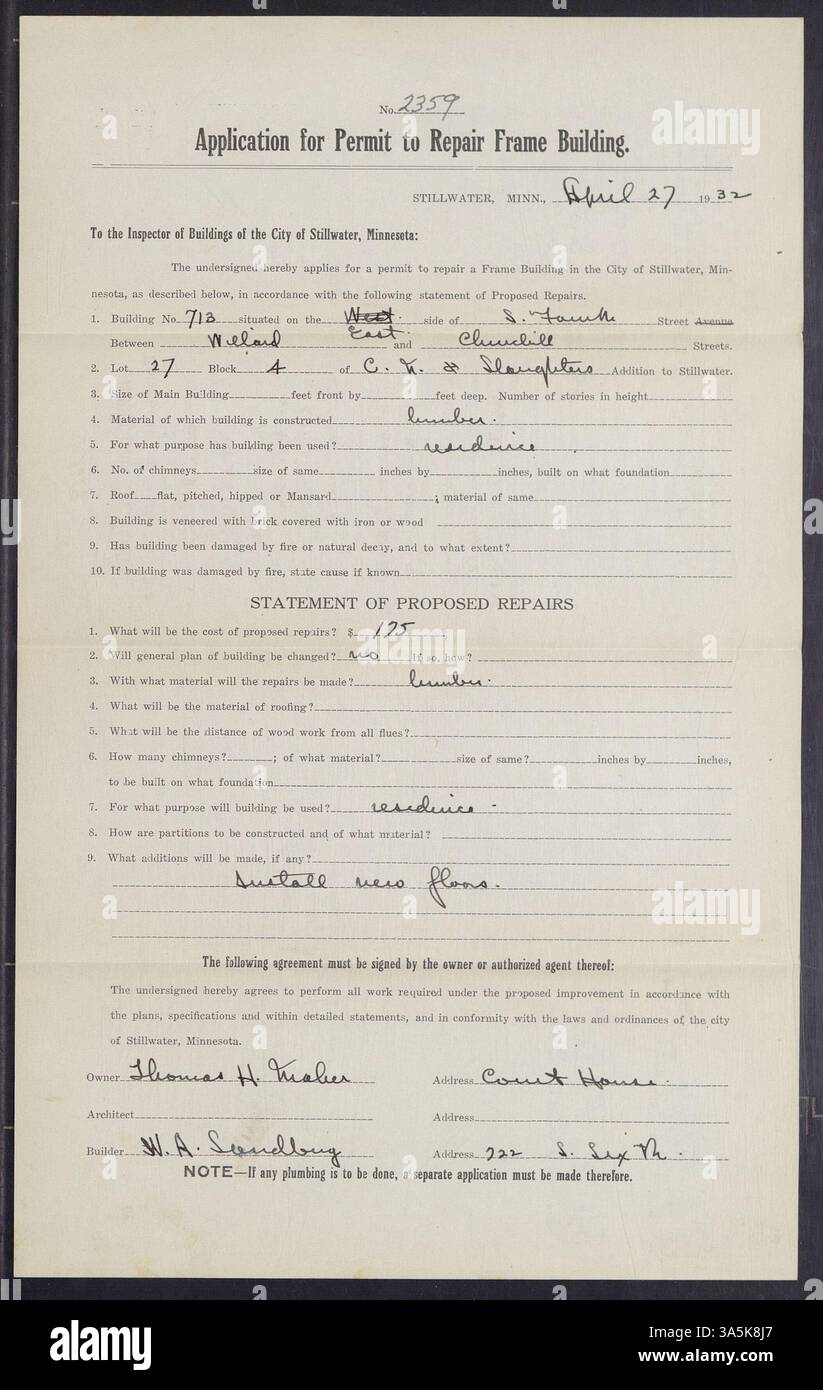 No. 2359
Application for Permit to Repair Frame Building.
STILLWATER, MINN., April 27 1932
To the Inspector of Buildings of the City of Stillwater, Minnesota:
The undersigned hereby applies for a permit to repair a Frame Building in the City of Stillwater, Min-
nesota, as described below, in accordance with the following statement of Proposed Repairs.
1. Building No. 713 situated on the West side of S. Fourth Street Avenue
East
Between Willard and Churchill Streets.
2. Lot 27 Block 4 of C. & Slaughters Addition to Stillwater.
3. Size of Main Building feet front by feet deep. Number of stories in height
4. Material of which building is constructed lumber.
5. For what purpose has building been used? residence.
6. No. of chimneys size of same inches by inches, built on what foundation
7. Roof flat, pitched, hipped or Mansard ; material of same
8. Building is veneered with brick covered with iron or wood
9. Has building been damaged by fire or natural decay, and to what extent?
10. If building was damaged by fire, state cause if known
STATEMENT OF PROPOSED REPAIRS
1. What will be the cost of proposed repairs? $ 175
2. Will general plan of building be changed? no If so, how?
3. With what material will the repairs be made? lumber.
4. What will be the material of roofing?
5. What will be the distance of wood work from all flues?
6. How many chimneys? ; of what material? size of same? inches by inches,
to be built on what foundation
7. For what purpose will building be used? residence -
8. How are partitions to be constructed and of what material?
9. What additions will be made, if any?
Install new floors.
The following agreement must be signed by the owner or authorized agent thereof:
The undersigned hereby agrees to perform all work required under the proposed improvement in accordance with
the plans, specifications and within detailed statements, and in conformity with the laws and ordinances of the city
of Stillwater, Minnesota.
Owner Thomas H. Maher Address Court House.
Architect Address
Builder W. A. Sandbug Address 722 S. Sixth.
NOTE—If any plumbing is to be done, a separate application must be made therefore.
alamy
Image ID: 3A5K8J7
www.alamy.com